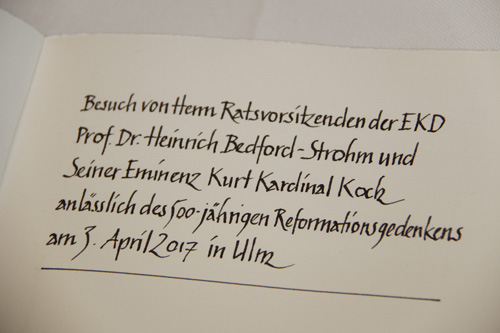 Besuch von Herrn Ratsvorsitzenden der EKD
Prof. Dr. Heinrich Bedford-Strohm und
Seiner Eminenz Kurt Kardinal Kock
anlässlich des 500-jährigen Reformationsgedenkens
am 3. April 2017 in Ulm